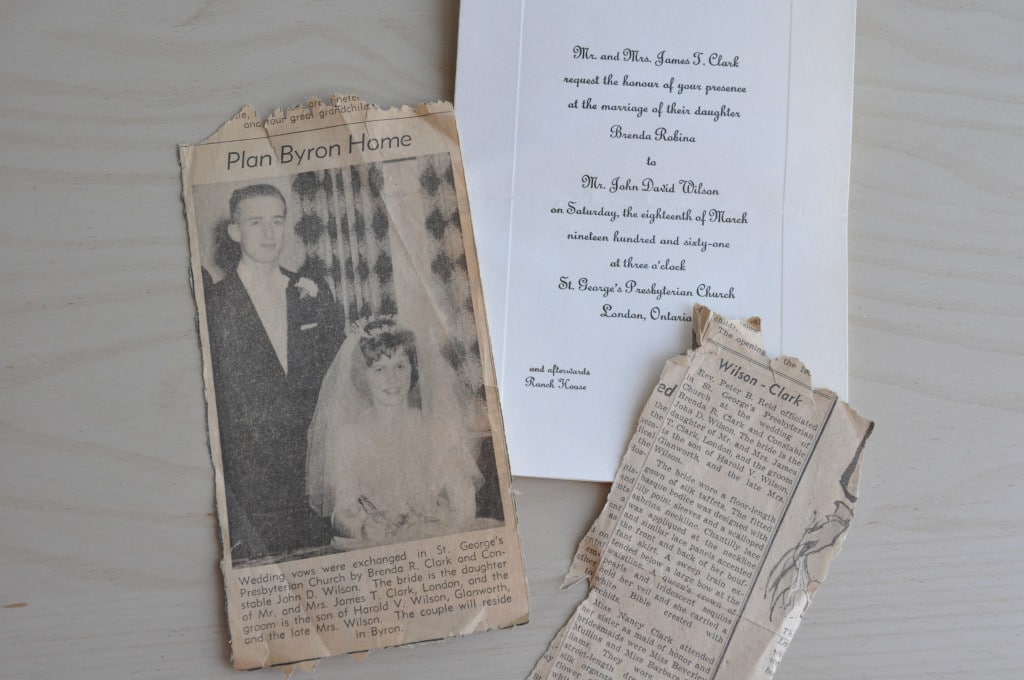 and four great grandchild
Plan Byron Home
Wedding vows were exchanged in St. George's
Presbyterian Church by Brenda R. Clark and Con-
stable John D. Wilson. The bride is the daughter
of Mr. and Mrs. James T. Clark, London, and the
groom is the son of Harold V. Wilson, Glanworth,
and the late Mrs. Wilson. The couple will reside
in Byron.
Mr. and Mrs. James T. Clark
request the honour of your presence
at the marriage of their daughter
Brenda Robina
to
Mr. John David Wilson
on Saturday, the eighteenth of March
nineteen hundred and sixty-one
at three o'clock
St. George's Presbyterian Church
London, Ontario
and afterwards
Ranch House
The opening
Wilson - Clark
Rev. Peter B. Reid officiated
in St. George's Presbyterian
Church at the wedding of
Brenda R. Clark and Constable
John D. Wilson. The bride is the
daughter of Mr. and Mrs. James
T. Clark, London, and the groom
is the son of Harold V. Wilson,
Glanworth, and the late Mrs.
Wilson.
The bride wore a floor-length
gown of silk taffeta. The fitted
basque bodice was designed with
lily point sleeves and a scalloped
sabrina neckline. Chantilly lace
was appliqued at the neckline
and similar lace panels accented
the front and back of her bouf-
fant skirt. A sweep train ex-
tended below a large bow at the
waistline. A queen's crown of
pearls and iridescent sequins
held her veil and she carried a
white Bible crested with
orchids.
Miss Nancy Clark attended
her sister as maid of honor and
bridesmaids were Miss Beverley
Mullins and Miss Barbara
liams. They wore
street-length
silk organz
flower